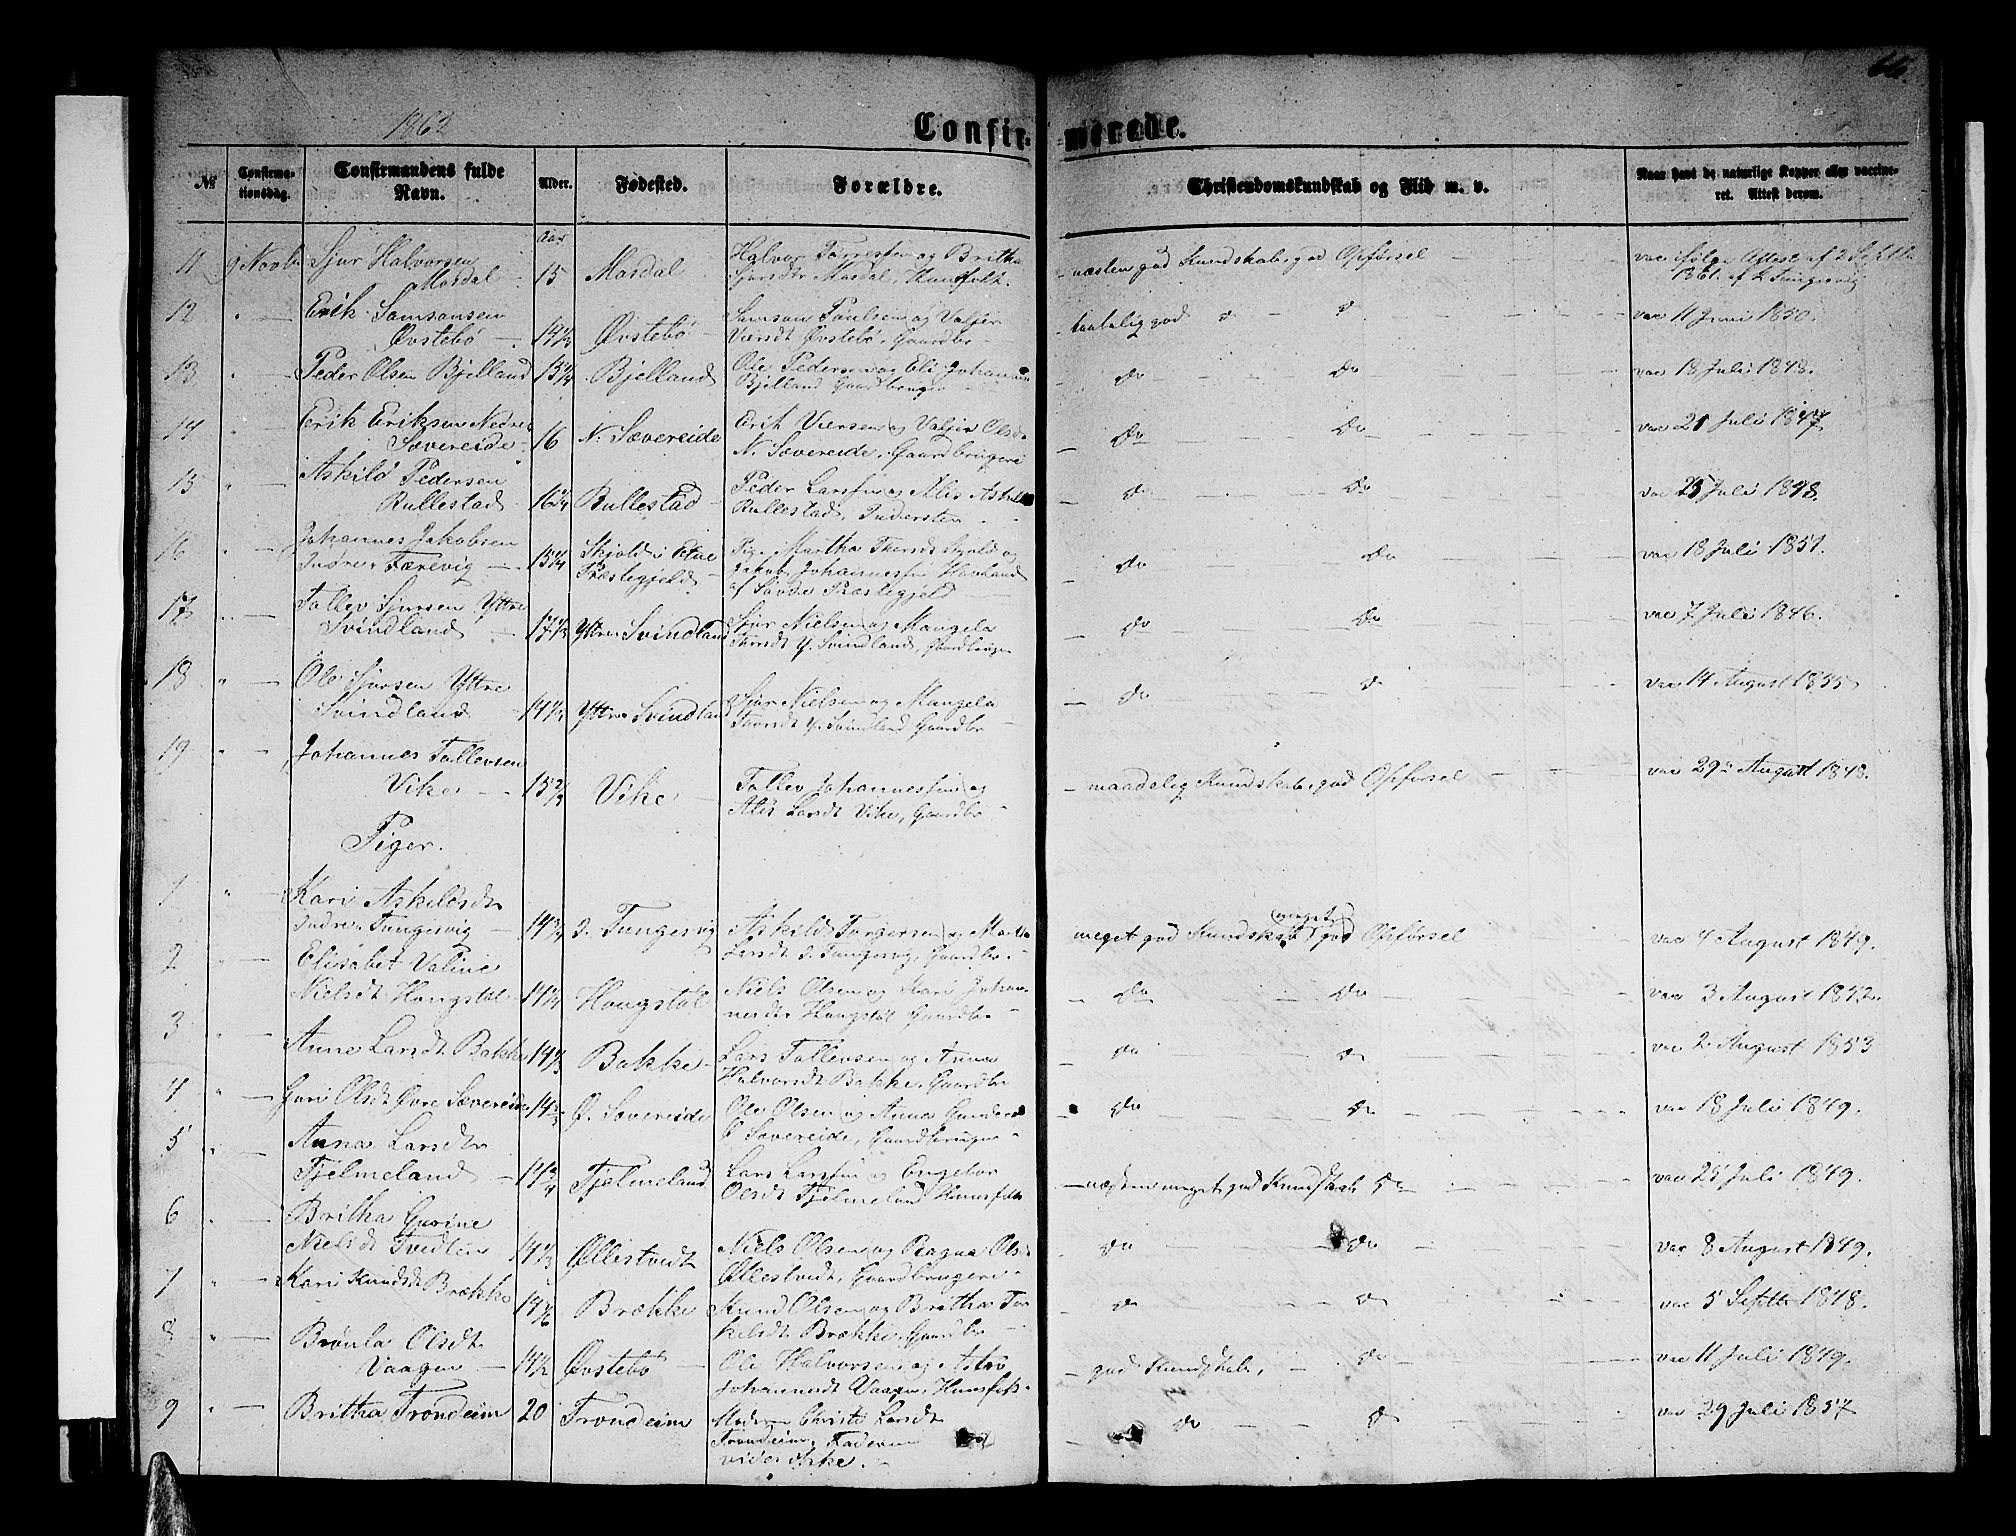 66.
1862
Confirmerede.
№
Confirmationsdag.
Confirmandens fulde Navn.
Alder.
Fødested.
Forældre.
Christendomskundskab og Flid m. v.
Naar havt de naturlige Kopper eller vaccineret. Attest derom.
Aar
11 9 Novbr Sjur Halvorsen Mosdal 15 Mosdal Halvor Torressen og Britha Sjursdtr Mosdal, Huusfolk. næsten god Kundskab, god Opførsel vac ifølge Attest af 2 Septbr 1861 af L Tungesvig
12 " Erik Samsonsen Øvstebø 14 1/3 Øvstebø Samson Poulsen og Valgjer Viersdt Øvstebø, Gaardbr taalelig god d d vac 11 Juni 1850.
13 " Peder Olsen Bjelland 15 1/4 Bjelland Ole Pedersen og Eli Johannis Bjelland Gaardbruger Do Do vac 18 Juli 1848.
14 " Erik Eriksen Nedre Sævereide 16 N. Sævereide Erik Viersen og Valgjer Olsdt N. Sævereide, Gaardbrugere Do Do vac 21 Juli 1847
15 " Askild Pedersen Rullestad 16 3/4 Rullestad Peder Larssen og Alis Askilds Rullestad, Inderster Do Do vac 25 Juli 1848.
16 " Johannes Jakobsen Indre Færevig 15 1/4 Skjold i Etne Præstegjeld Pige Martha Thorsdt Skjold og Jakob Johannessen Havland af Savde Præstegjeld Do Do vac 18 Juli 1851.
17 " Tollev Sjursen Yttre Svindland 17 1/2 Yttre Svindland Sjur Nielsen og Mangela Torsdt Y. Svindland, Gaardbruger Do Do vac 7 Juli 1846.
18 " Ole Sjursen Yttre Svindland 14 1/2 Yttre Svindland Sjur Nielsen og Mangela Torsdt Y. Svindland Gaardbr Do d vac 14 August 1855
19 " Johannes Tollevsen Vike 15 2/3 Vike Tollev Johannessen og Alis Larsdt Vike, Gaardbr maadelig Kundskab, god Opførsel vac 29 August 1848.
Piger.
1 " Kari Askildsdtr Indre Tungesvig 14 3/4 I. Tungesvig Askild Torgersen og Martha Larsdt I. Tungesvig, Gaardbr. meget god Kundskab, (meget) god Opførsel vac 4 August 1849.
2 Elisabet Valine Nielsdt Hougstøl 14 1/4 Hougstøl Niels Olsen og Kari Johannesdtr Hougstøl Gaardbr Do Do vac 3 August 1842.
3 " Anne Larsdt Bakke 14 1/3 Bakke Lars Tollevsen og Anna Halvorsdt Bakke, Gaardbr Do Do vac 2 August 1853
4 " Guri Olsdt Øvre Sævereide 14 2/3 Ø. Sævereide Ole Olsen og Anna Ø Sævereide, Gaardbruger Do Do vac 18 Juli 1849.
5 " Anna Larsdtr Fjelmeland 14 3/4 Fjelmeland Lars Larssen og Engebor Olsdt Fjelmeland Huusfolk næsten meget god Kundskab Do vac 25 Juli 1849.
6 " Britha Gurine Nielsdt Tvedten 14 1/3 Øllestvedt Niels Olsen og Ragna Olsdt Øllestvedt, Gaardbrugere Do Do vac 8 August 1849.
7 " Kari Knudsdt Brække 14 1/6 Brække Knud Olsen og Britha Torkelsdt Brække, Gaardbr Do Do vac 5 Septbr 1848.
8 " Brønla Olsdt Vaagen 14 1/2 Øvstebø Ole Halvorsen og Astri Johannesdt Vaagen, Huusfolk god Kundskab, Do vac 11 Juli 1849.
9 " Britha Trondeim 20 Trondeim Moderen Christi Larsdt Trondeim, Faderen vides ikke. Do D vac 29 Juli 1857